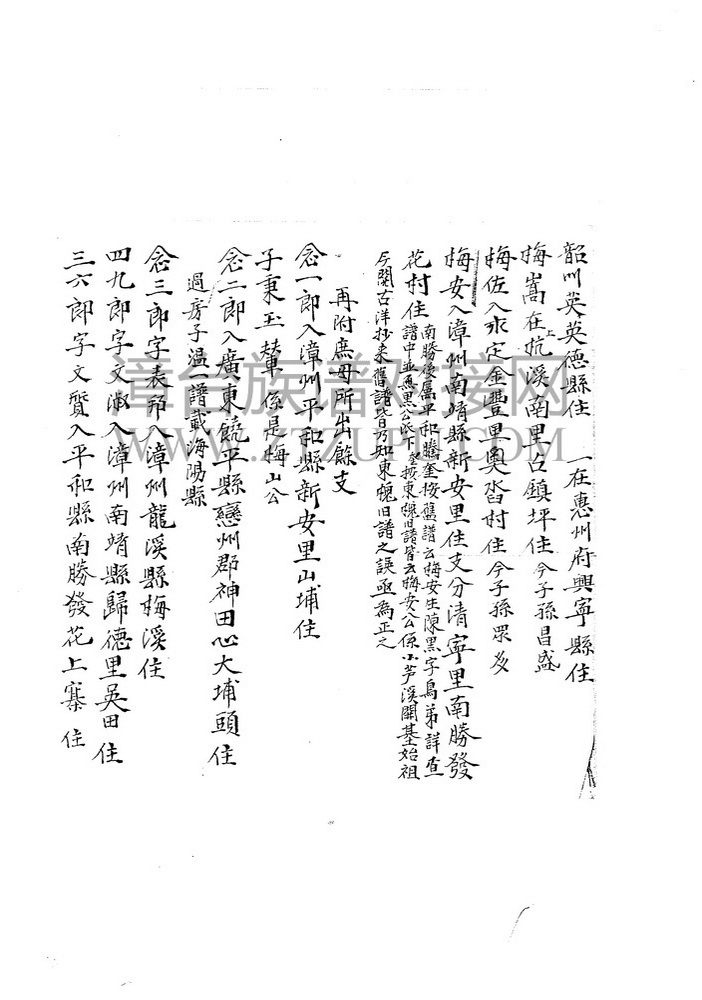 韶州英英德縣住　一在惠州府興寧縣住
梅嵩在上杭溪南里古鎮坪住今子孫昌盛
梅佐入永定金豐里奧沓村住今子孫眾多
梅安入漳州南靖縣新安里住支分清寧里南勝發
花村住
南勝後屬平和騰奎按舊譜云梅安生陳黑字烏弟詳查
譜中並無黑公派下奎按東槐旧譜皆云梅安公係小芦溪開基始祖
古洋抄來舊譜皆乃如東槐旧譜之誤亟為正之
再附庶母所出餘支
念一郎入漳州平和縣新安里山埔住
子秉玉 係是梅山公
念二郎入廣東饒平縣戀州郡神田心大埔頭住
過房子溫一譜載海陽縣
念三郎字表 入漳州龍溪縣梅溪住
四九郎字文淑入漳州南靖縣歸德里吳田住
三六郎字文質入平和縣南勝發花上寨住
漳台族譜對接網
WWW.ZTZUPU.COM